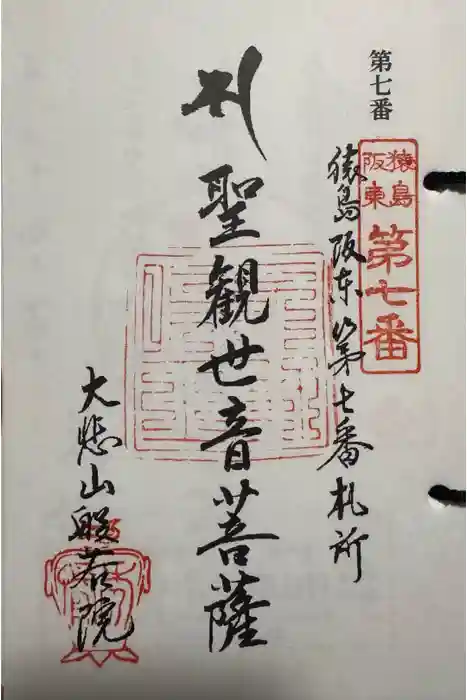 第七番
猿島
阪東
第七番
猿島阪东第七番札所
聖觀世音菩薩
大悲山般若院